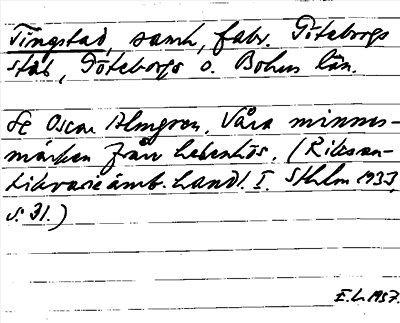 Tingstad, samh, fabr. Göteborgs
stad, Göteborgs o. Bohus län.
Se Oscar Almgren. Våra minnes-
märken från hedenhös. (Riksan-
tikvarieämb. handl. I. Sthlm 1933,
s. 31.)
E.L. 1957.